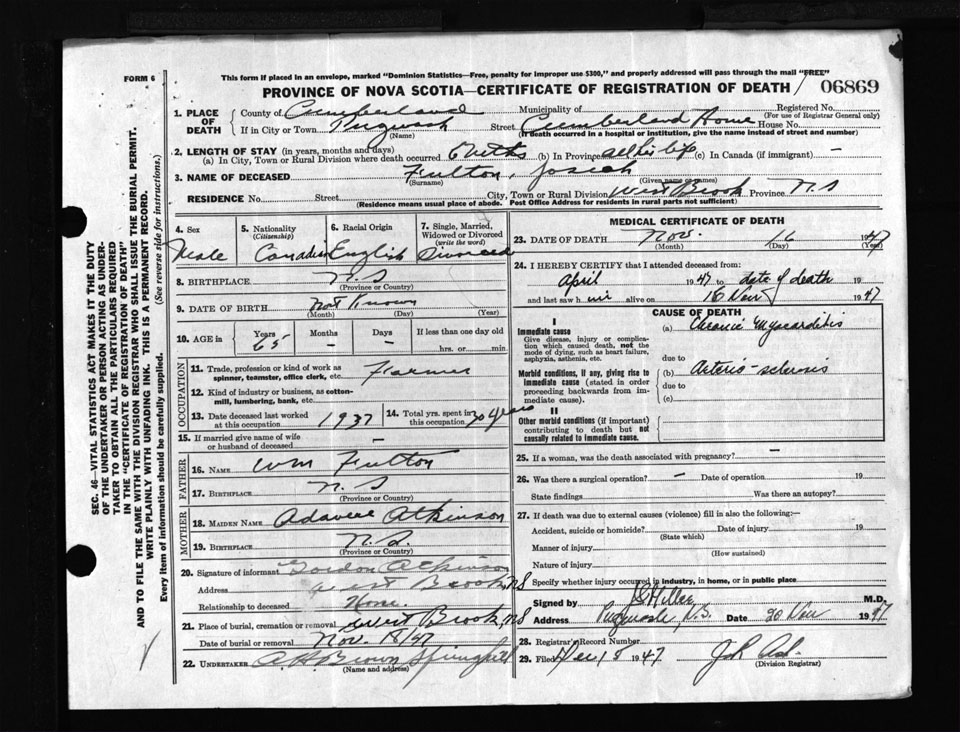 FORM 6
This form if placed in an envelope, marked "Dominion Statistics—Free, penalty for improper use $300," and properly addressed will pass through the mail "FREE"
PROVINCE OF NOVA SCOTIA—CERTIFICATE OF REGISTRATION OF DEATH
06869
SEC. 46—VITAL STATISTICS ACT MAKES IT THE DUTY
OF THE UNDERTAKER OR PERSON ACTING AS UNDER-
TAKER TO OBTAIN ALL THE PARTICULARS REQUIRED
IN THE "CERTIFICATE OF REGISTRATION OF DEATH"
AND TO FILE THE SAME WITH THE DIVISION REGISTRAR WHO SHALL ISSUE THE BURIAL PERMIT.
WRITE PLAINLY WITH UNFADING INK. THIS IS A PERMANENT RECORD.
Every item of information should be carefully supplied. (See reverse side for instructions.)
1. PLACE OF DEATH County of Cumberland Municipality of Registered No.
(For use of Registrar General only)
If in City or Town Pugwash Street Cumberland Home House No.
(Name) (If death occurred in a hospital or institution, give the name instead of street and number)
2. LENGTH OF STAY (in years, months and days)
(a) In City, Town or Rural Division where death occurred mths (b) In Province all his life (c) In Canada (if immigrant) —
3. NAME OF DECEASED Fulton, Josiah
(Surname) (Given name or names)
RESIDENCE No. Street City, Town or Rural Division West Brook Province N.S
(Residence means usual place of abode. Post Office Address for residents in rural parts not sufficient)
4. Sex Male
5. Nationality (Citizenship) Canadian
6. Racial Origin English
7. Single, Married, Widowed or Divorced (write the word) Divorced
8. BIRTHPLACE N.S
(Province or Country)
9. DATE OF BIRTH Not Known
(Month) (Day) (Year)
10. AGE in Years 65 Months — Days — If less than one day old hrs. or min.
OCCUPATION
11. Trade, profession or kind of work as spinner, teamster, office clerk, etc. Farmer
12. Kind of industry or business, as cotton-mill, lumbering, bank, etc.
13. Date deceased last worked at this occupation 1937
14. Total yrs. spent in this occupation 30 years
15. If married give name of wife or husband of deceased —
FATHER
16. NAME Wm Fulton
17. BIRTHPLACE N.S
(Province or Country)
MOTHER
18. MAIDEN NAME Atkinson
19. BIRTHPLACE N.S.
(Province or Country)
20. Signature of informant Gordon Atkinson
Address West Brook, NS
Relationship to deceased None.
21. Place of burial, cremation or removal West Brook, NS
Date of burial or removal Nov. 18/47
22. UNDERTAKER Brown Springhill
(Name and address)
MEDICAL CERTIFICATE OF DEATH
23. DATE OF DEATH Nov. 16 1947
(Month) (Day) (Year)
24. I HEREBY CERTIFY that I attended deceased from:
April 1947 to date of death
and last saw him alive on 16 Nov 1947
CAUSE OF DEATH
I
Immediate cause
Give disease, injury or complica-
tion which caused death, not the
mode of dying, such as heart failure,
asphyxia, asthenia, etc.
(a) Chronic Myocarditis
due to
Morbid conditions, if any, giving rise to
immediate cause (stated in order
proceeding backwards from im-
mediate cause).
(b) Arterio-sclerosis
due to
(c)
II
Other morbid conditions (if important)
contributing to death but not
causally related to immediate cause.
25. If a woman, was the death associated with pregnancy? —
26. Was there a surgical operation? — Date of operation 19
State findings Was there an autopsy?
27. If death was due to external causes (violence) fill in also the following:—
Accident, suicide or homicide? Date of injury 19
(State which)
Manner of injury
(How sustained)
Nature of injury
Specify whether injury occurred in industry, in home, or in public place
Signed by Hiller M.D.
Address Pugwash N.S. Date 20 Nov 1947
28. Registrar's Record Number
29. Filed Dec 1947
(Division Registrar)